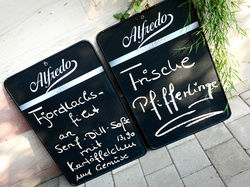 Alfredo
Fjordlachs-
filet
an
Senf-Dill-Soße
mit 13,90
Kartöffelchen
und Gemüse
Alfredo
Frische
Pfifferlinge